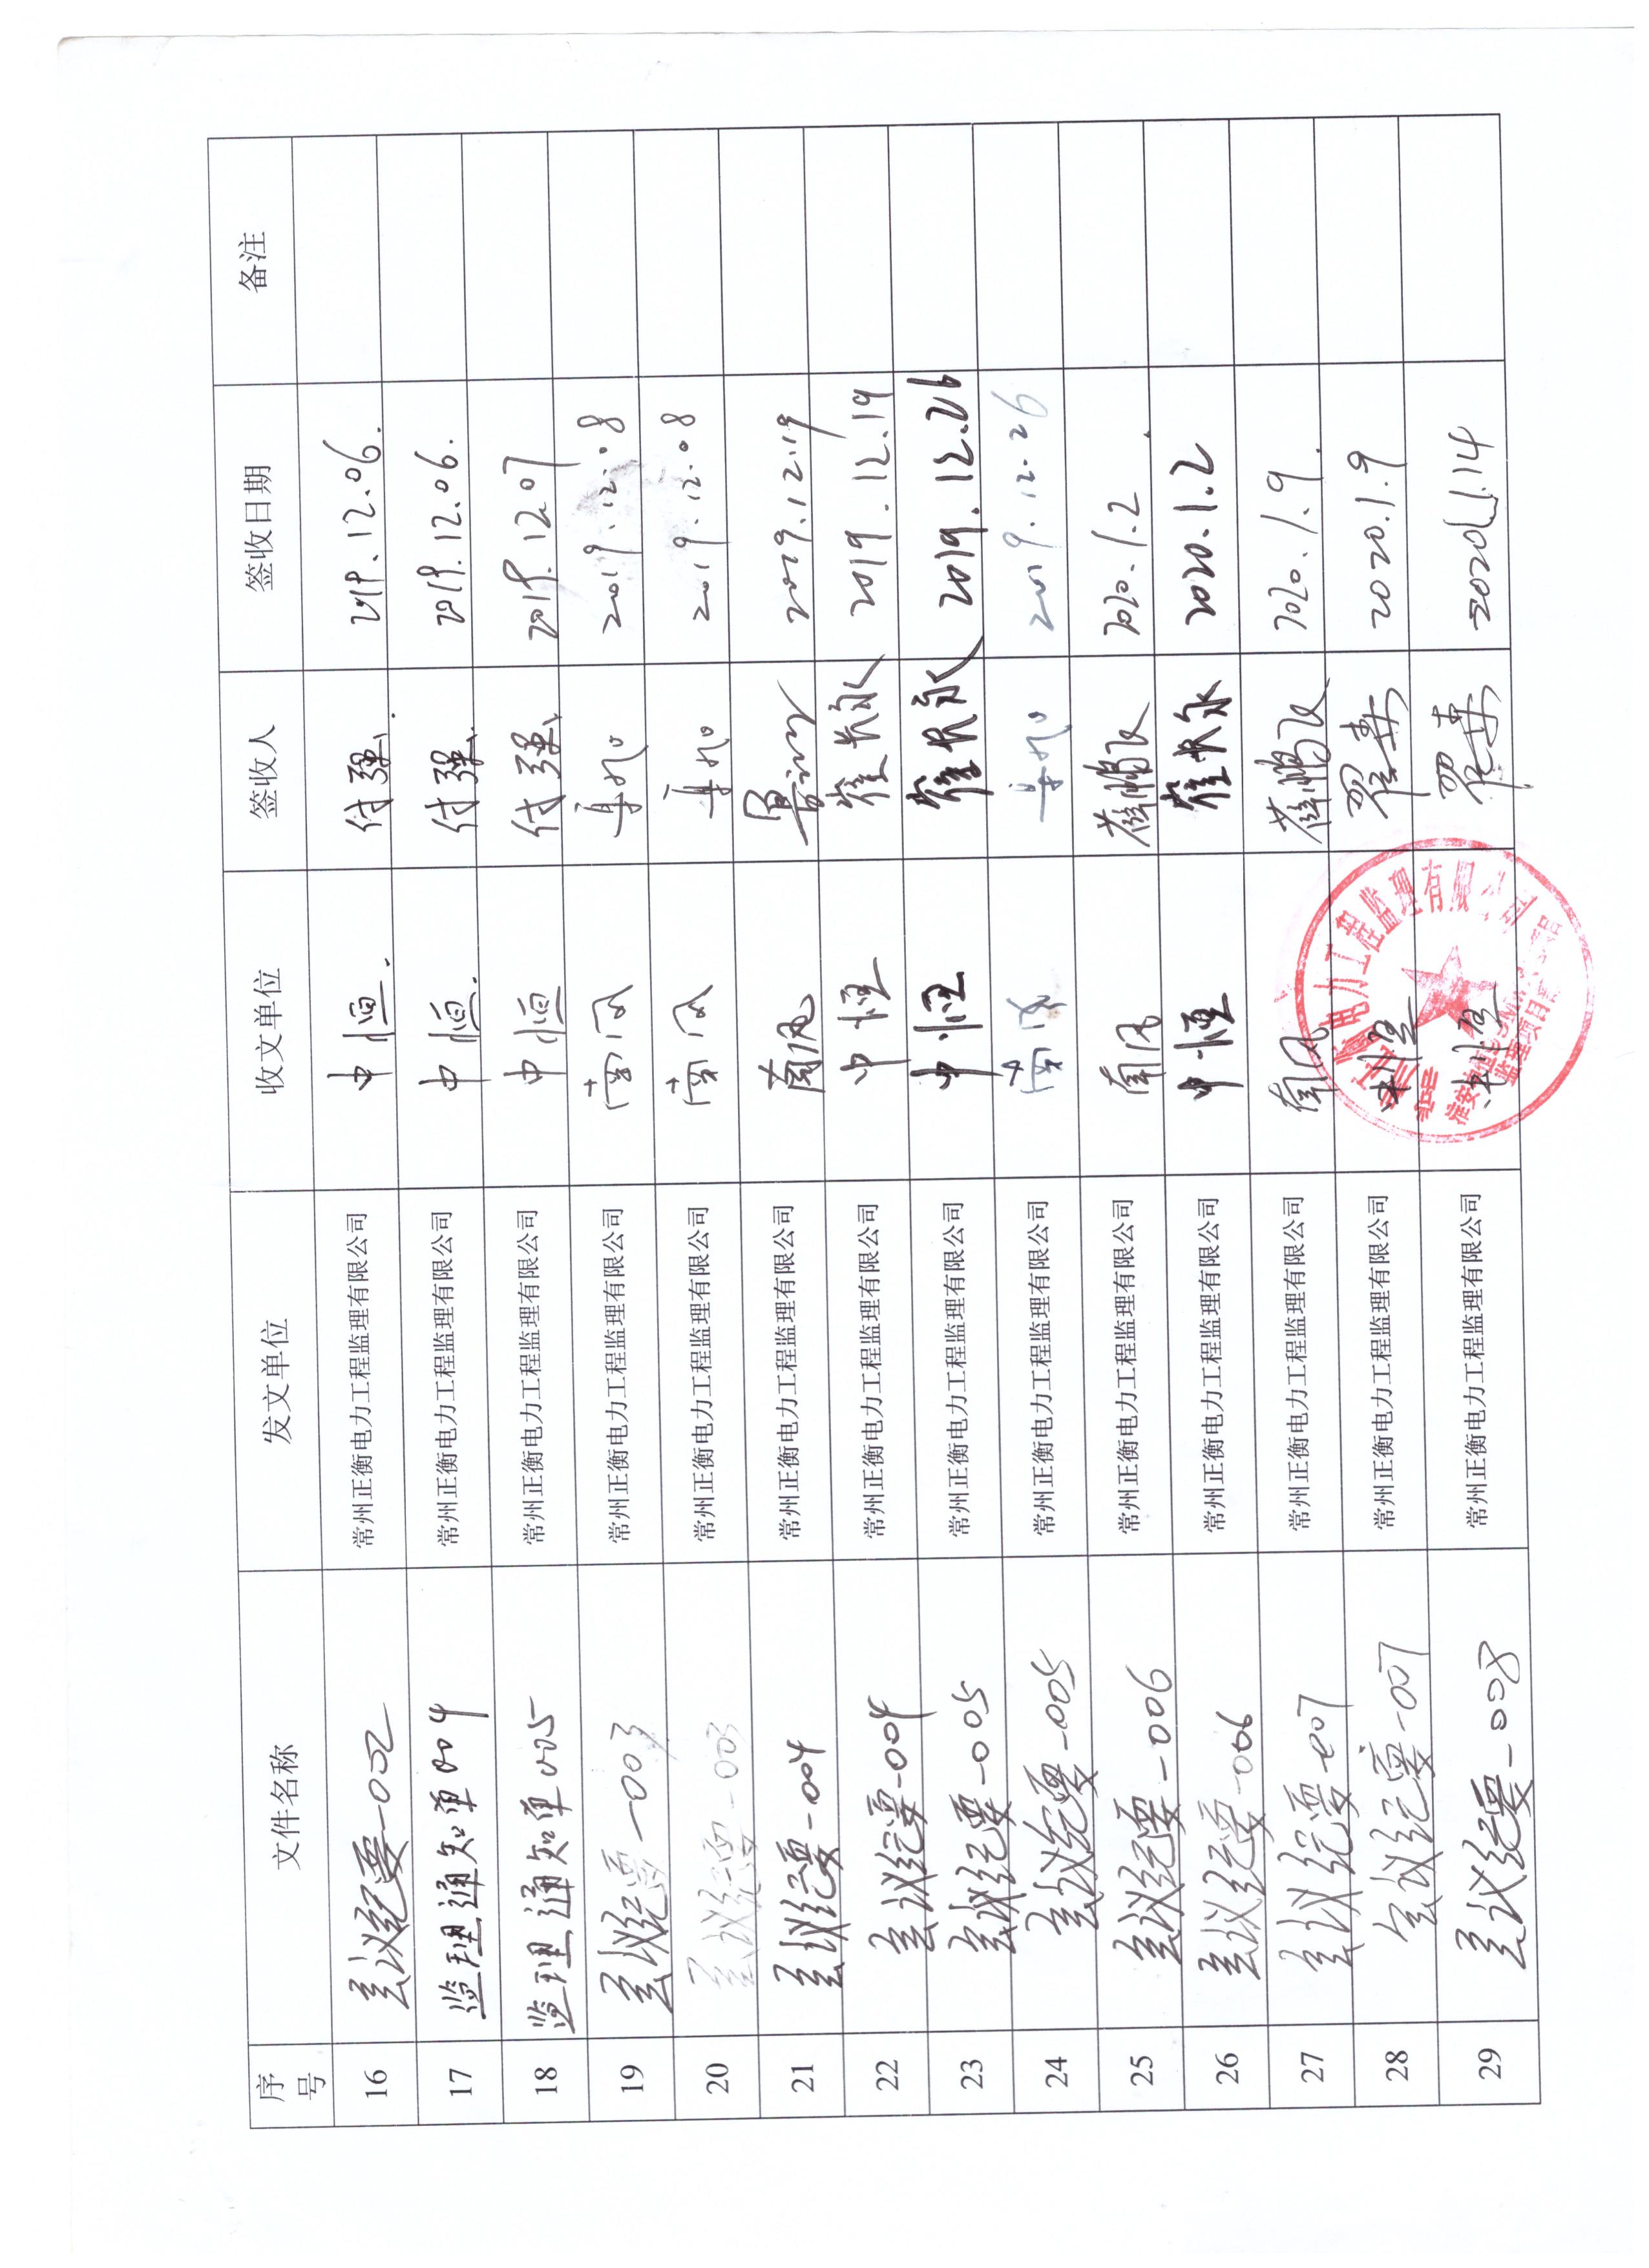 序号 文件名称 发文单位 收文单位 签收人 签收日期 备注
16 会议纪要-002 常州正衡电力工程监理有限公司 中恒. 付强. 2019.12.06.
17 监理通知单004 常州正衡电力工程监理有限公司 中恒. 付强. 2019.12.06.
18 监理通知单005 常州正衡电力工程监理有限公司 中恒 付强 2019.12.07
19 会议纪要-003 常州正衡电力工程监理有限公司 南风 2019.12.08
20 会议纪要-003 常州正衡电力工程监理有限公司 南风 2019.12.08
21 会议纪要-004 常州正衡电力工程监理有限公司 南风 2019.12.19
22 会议纪要-004 常州正衡电力工程监理有限公司 中恒 崔长永 2019.12.19
23 会议纪要-005 常州正衡电力工程监理有限公司 中恒 崔长永 2019.12.26
24 会议纪要-005 常州正衡电力工程监理有限公司 南风 2019.12.26
25 会议纪要-006 常州正衡电力工程监理有限公司 南风 2020.1.2
26 会议纪要-006 常州正衡电力工程监理有限公司 中恒 崔长永 2020.1.2
27 会议纪要-007 常州正衡电力工程监理有限公司 南风 2020.1.9.
28 会议纪要-007 常州正衡电力工程监理有限公司 中恒 2020.1.9
29 会议纪要-008 常州正衡电力工程监理有限公司 中恒 2020.1.14
电力工程监理有限公司
监理项目